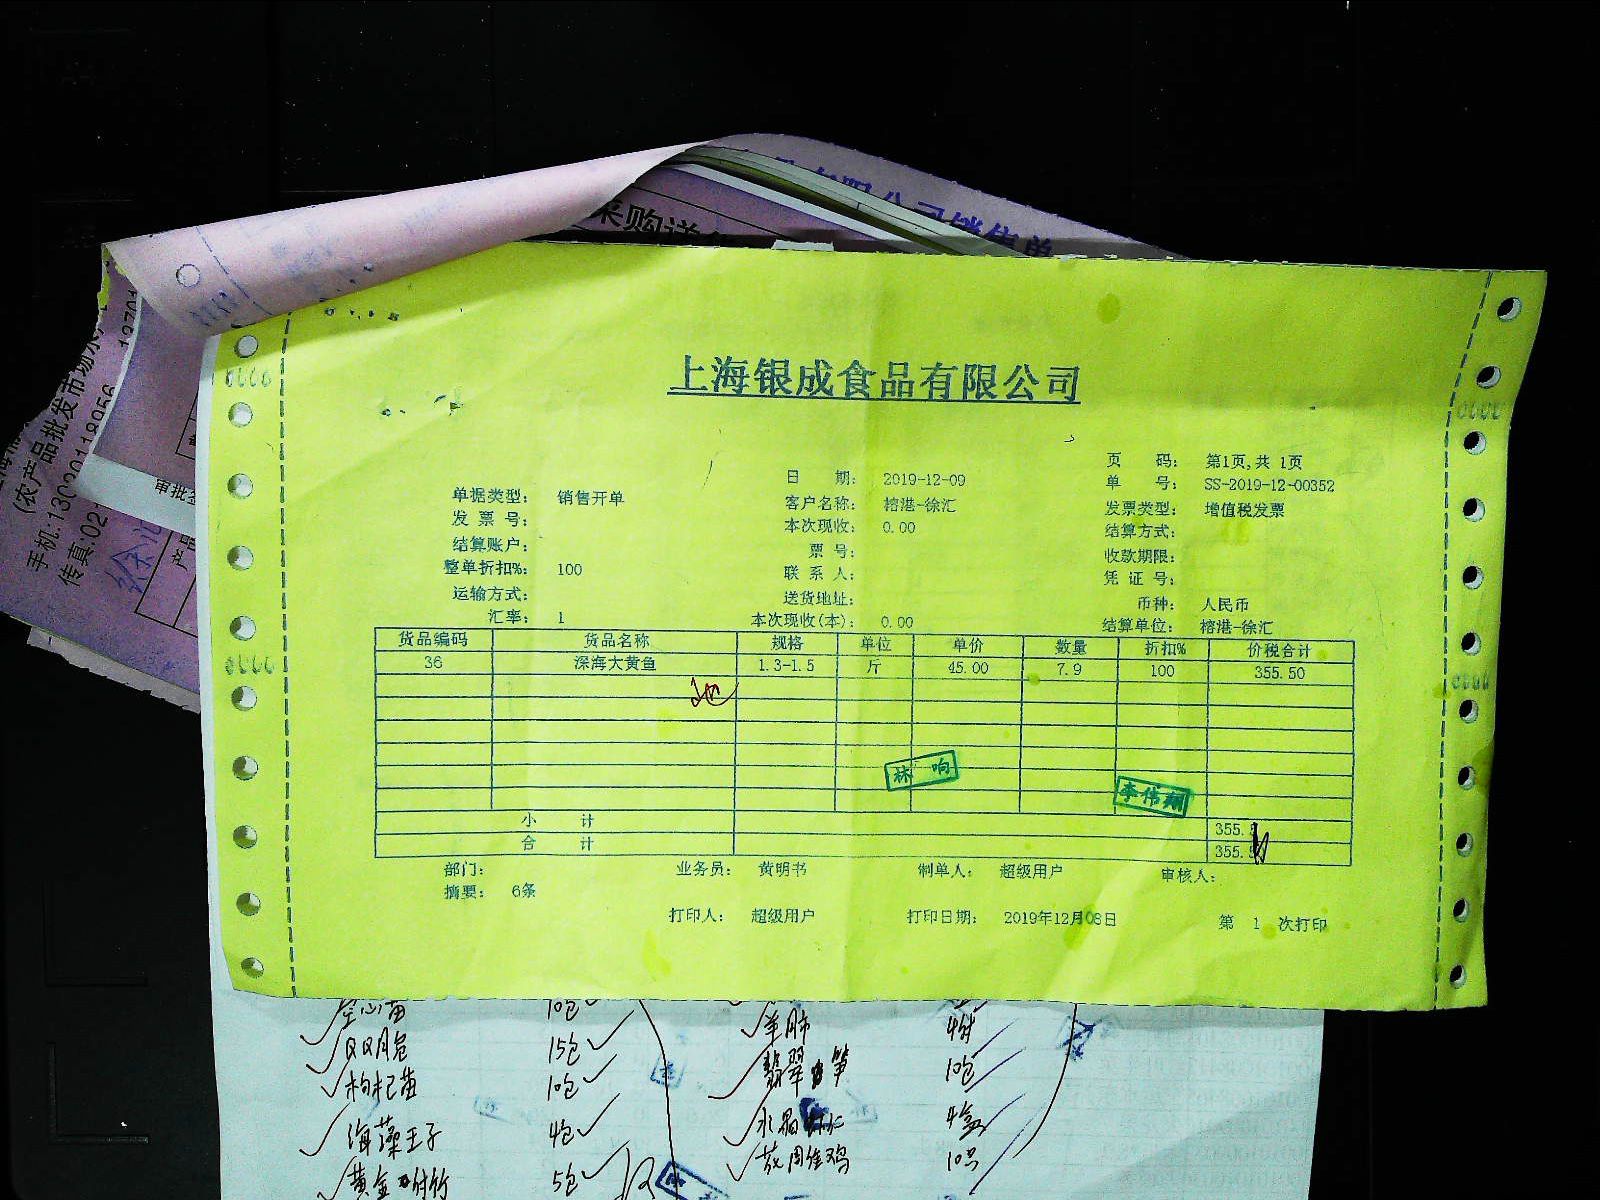 采购送
限公司销售单
(农产品批发市场水
手机:13
传真:02
审批
产品
徐汇
上海银成食品有限公司
页 码： 第1页,共 1页
日 期： 2019-12-09 单 号： SS-2019-12-00352
单据类型： 销售开单 客户名称： 榕港-徐汇 发票类型： 增值税发票
发 票 号： 本次现收： 0.00 结算方式：
结算账户： 票 号： 收款期限：
整单折扣%： 100 联 系 人： 凭 证 号：
运输方式： 送货地址： 币种： 人民币
汇率： 1 本次现收(本)： 0.00 结算单位： 榕港-徐汇
货品编码 货品名称 规格 单位 单价 数量 折扣% 价税合计
36 深海大黄鱼 1.3-1.5 斤 45.00 7.9 100 355.50
林 响
李伟翔
小 计 355.5
合 计 355.5
部门： 业务员： 黄明书 制单人： 超级用户 审核人：
摘要： 6条
打印人： 超级用户 打印日期： 2019年12月08日 第 1 次打印
空心苗 10包 羊肚 4
15包 翡翠 笋 10包
枸杞苗 10包 水晶虾仁 4盒
海藻王子 4包 10只
黄金 竹 5包